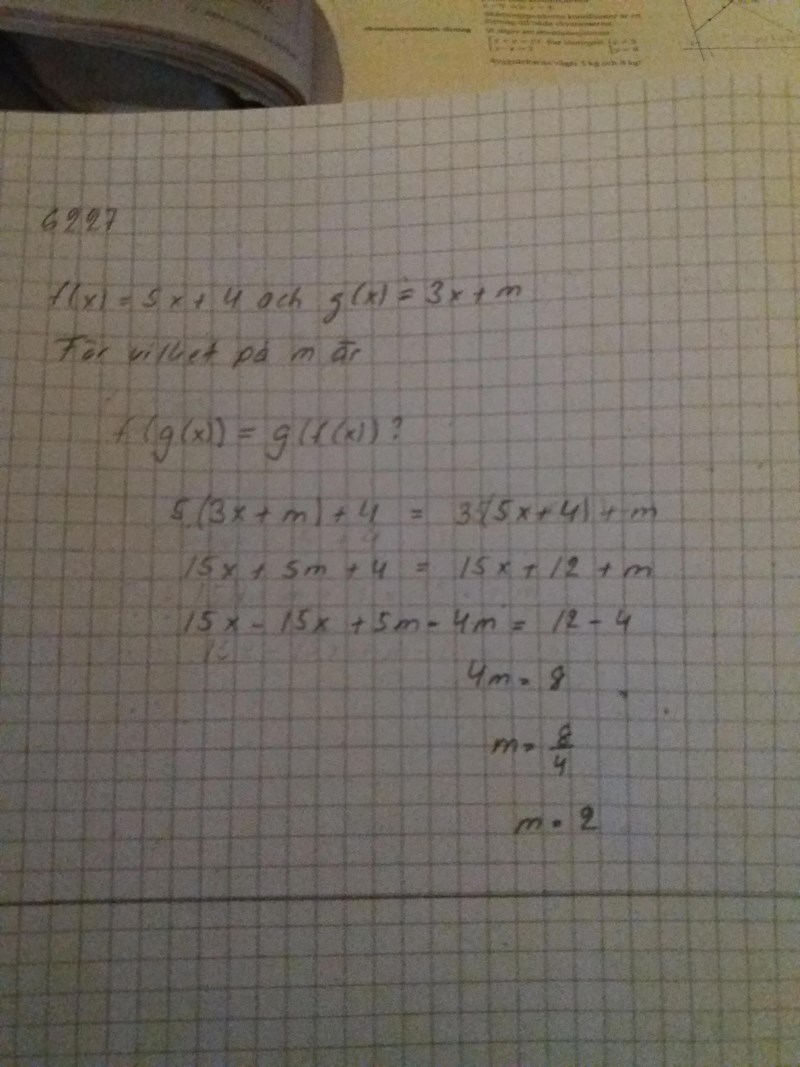 Ryggsäckarna väger 5 kg och 8 kg!
6227
f(x) = 5x + 4 och g(x) = 3x + m
För vilket på m är
f(g(x)) = g(f(x))?
5(3x + m) + 4 = 3(5x + 4) + m
15x + 5m + 4 = 15x + 12 + m
15x - 15x + 5m - 4m = 12 - 4
4m = 8
m = 8/4
m = 2